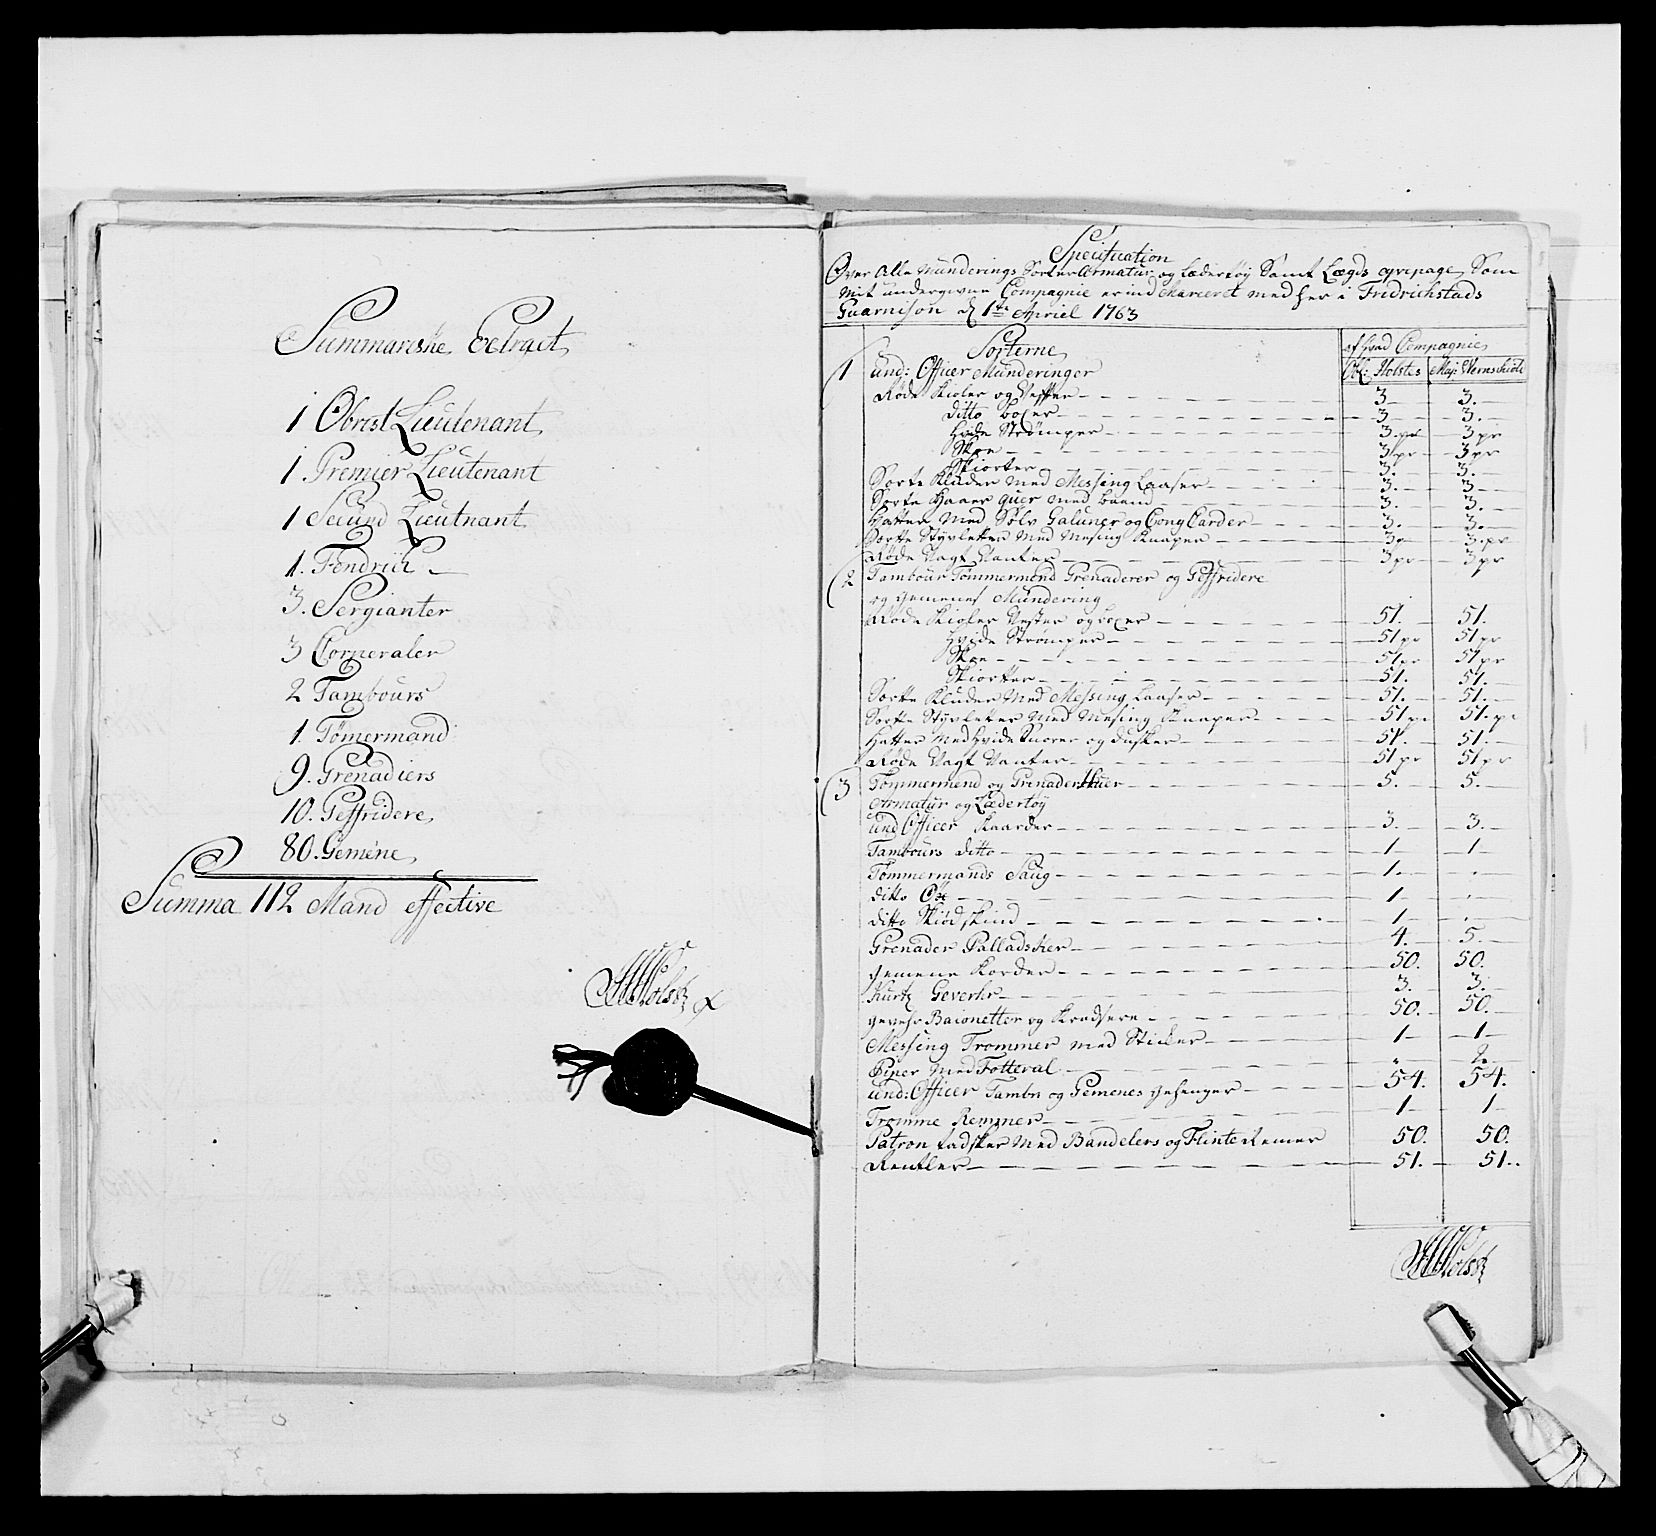 Summariske Extract
1 Obrist Lieutenant
1 Premier Lieutenant
1 Secund Lieutnant
1. Fendrich
3. Sergianter
3 Corperaler
2 Tambours
1. Tømermand
9. Grenadiers
10. Geffridere
80. Gemene
Summa 112 Mand effective
Holst
Specification
Over Alle Munderings Sorter Armatur og Lædertøy Samt Lægds eqvipage, Som
mit undergivne Compagnie er ind Marceret med her i Fridrichstads
Guarnison d 1te Apriel 1763
Sorterne
af hvad Compagnie
Obl: Holstes Maj: Wernschiold
1 und: Officer Munderinger
Røde Kioler og Vester 3 3.
ditto boxer 3 3.
Hvide Strømper 3 pr 3 pr
Skoe 3 pr 3 pr
Skiorter 3. 3.
Sorte Kluder med Messing Laaser 3. 3
Sorte Haar med baand 3. 3.
Hatter med Sølv Galuner og Cong Carder 3. 3.
Sorte Styvletter med Mesing Knaper 3 3. pr
Røde Vagt Vanter 3 pr 3 pr
2 Tambour Tømmermand Grenaderer og Geffridere
og gemenes Mundering
Røde Kioler Vester og boxer 51. 51.
Hvide Strømper 51 pr 51 pr
Skoe 51 pr 51 pr
Skiorter 51. 51.
Sorte Kluder med Messing Laaser 51. 51.
Sorte Styvletter med Mesing Knaper 51 p. 51. p.
Hatter med hvide Snorer og dusker 51. 51.
Røde Vagt Vanter 51 pr 51 pr
3 Tømmermand og Grenader Huer 5. 5.
Armatur og Lædertøy
und Officer Kaarder 3. 3.
Tambours ditto 1 1
Tømmermands Saug 1
ditto Øxe 1
ditto Skiødskind 1
Grenader Palladsker 4. 5.
gemene Korder 50. 50.
Kurtz Gevehr 3. 3.
gevehr Baionetter og Kradsere 50. 50.
Messing Trommer med Sticker 1 1
Piper med Fotteral 2.
und: Officer Tambr og Gemenes gehenger 54. 54.
Tromme Remmer 1 1
Patron tadsker med Bandelers og Flinte Remer 50. 50.
Rentzler 51. 51.
Holst